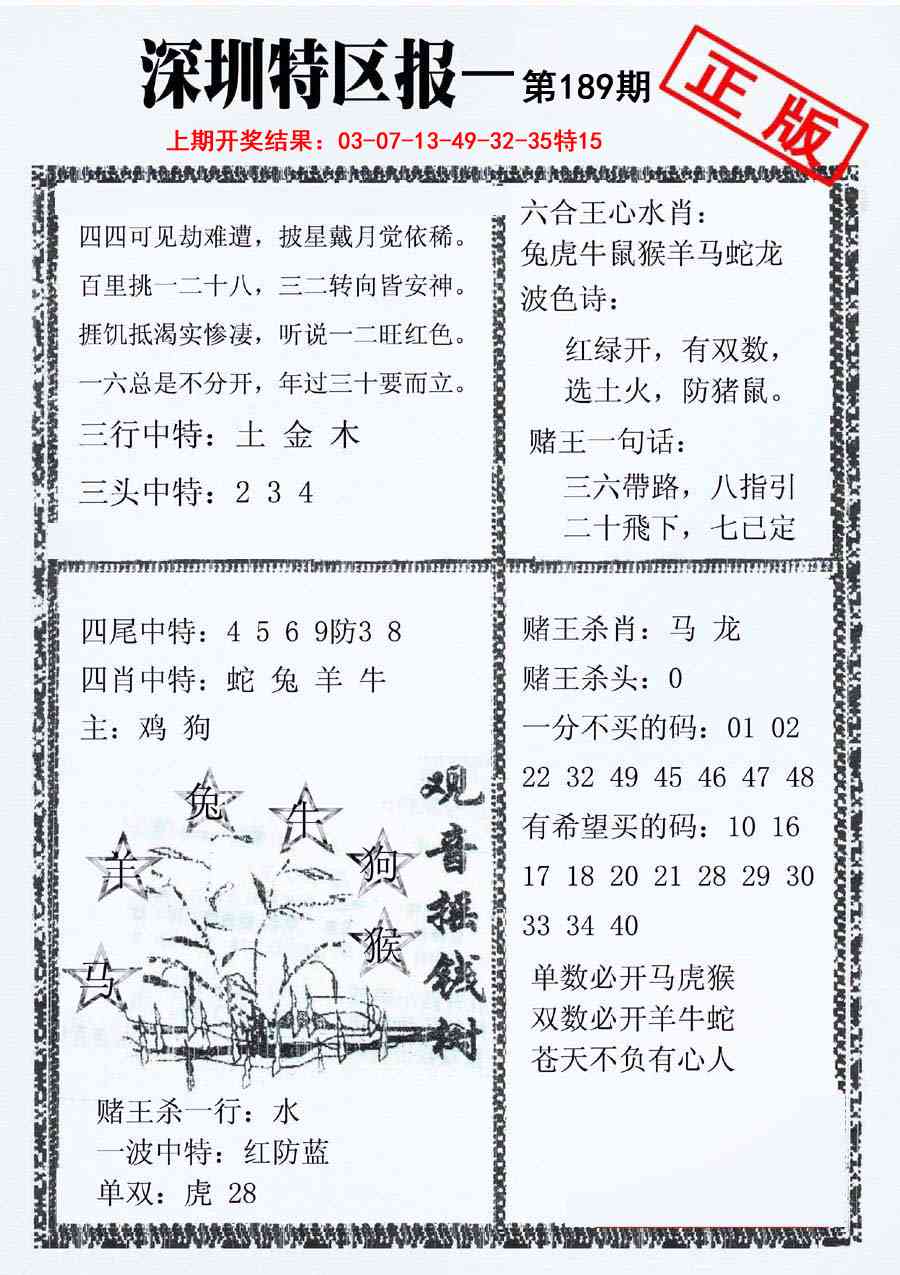 深圳特区报—第189期
正版
上期开奖结果：03-07-13-49-32-35特15
四四可见劫难遭，披星戴月觉依稀。
百里挑一二十八，三二转向皆安神。
捱饥抵渴实惨凄，听说一二旺红色。
一六总是不分开，年过三十要而立。
三行中特：土 金 木
三头中特：2 3 4
六合王心水肖：
兔虎牛鼠猴羊马蛇龙
波色诗：
红绿开，有双数，
选土火，防猪鼠。
赌王一句话：
三六帶路，八指引
二十飛下，七已定
四尾中特：4 5 6 9防3 8
四肖中特：蛇 兔 羊 牛
主：鸡 狗
兔
牛
羊
狗
猴
马
观音摇钱树
赌王杀一行：水
一波中特：红防蓝
单双：虎 28
赌王杀肖：马 龙
赌王杀头：0
一分不买的码：01 02
22 32 49 45 46 47 48
有希望买的码：10 16
17 18 20 21 28 29 30
33 34 40
单数必开马虎猴
双数必开羊牛蛇
苍天不负有心人